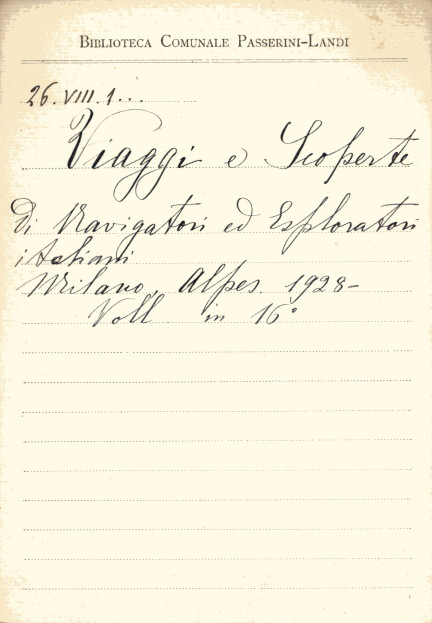 BIBLIOTECA COMUNALE PASSERINI-LANDI
26.VIII.1...
Viaggi e Scoperte
Di Navigatori ed Esploratori
italiani
Milano, Alpes 1928-
Voll in 16°